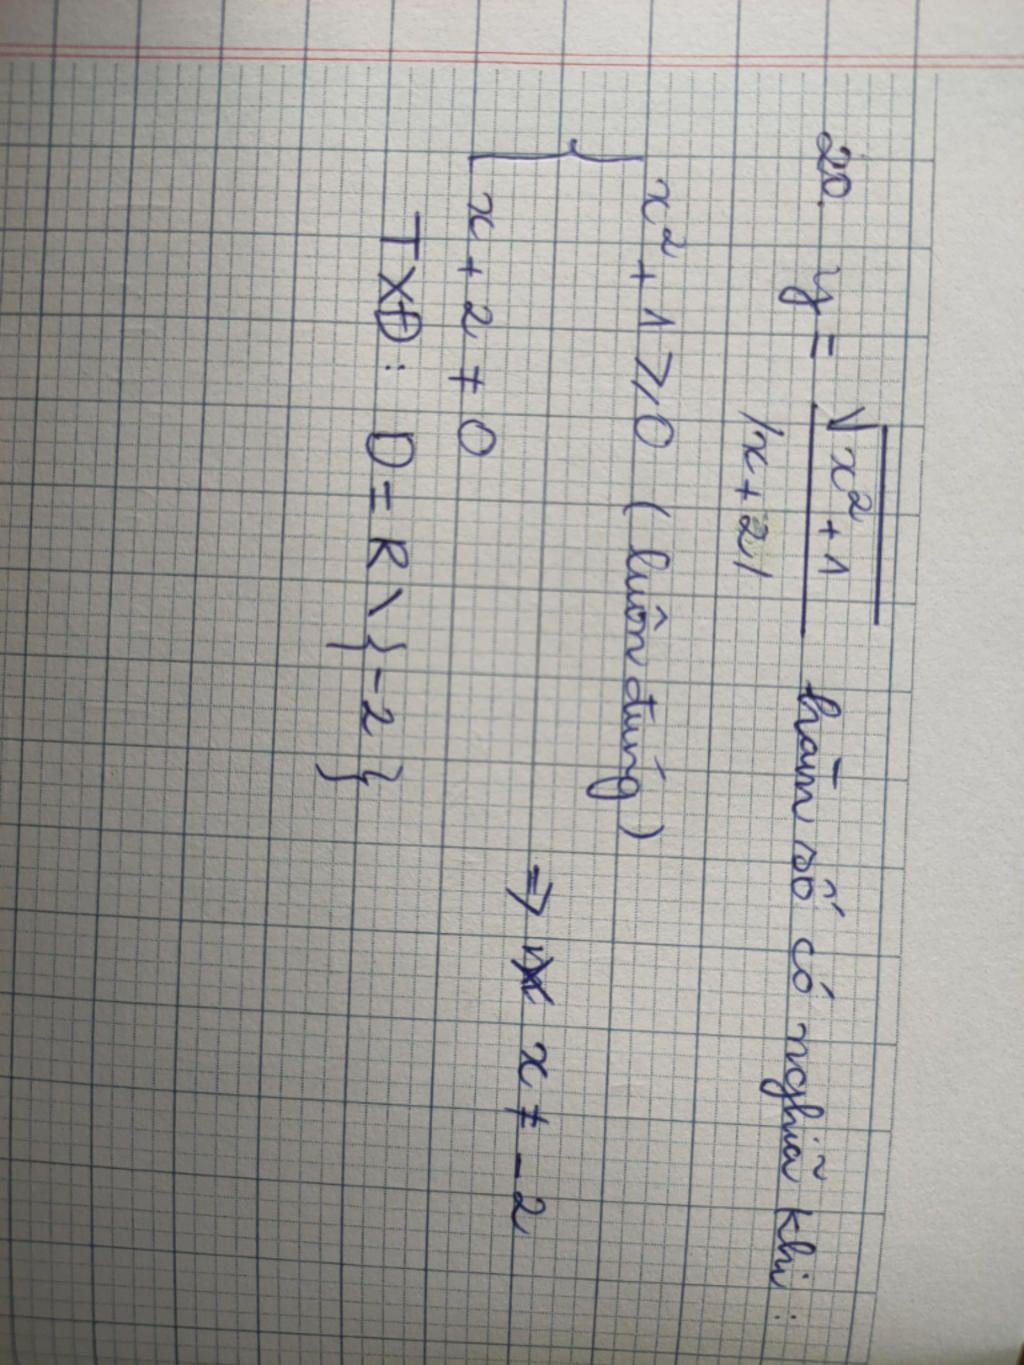 20. y = √(x² + 1) / |x + 2| hàm số có nghĩa khi :
{ x² + 1 ⩾ 0 ( luôn đúng )
x + 2 ≠ 0 => x ≠ -2
TXĐ : D = R \ {-2}